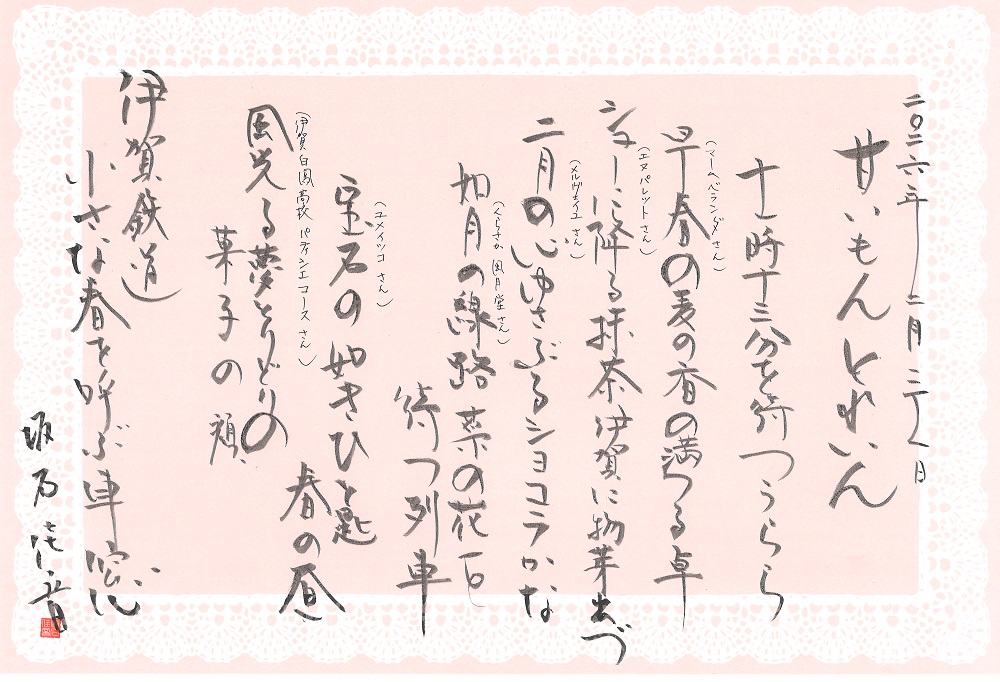 二〇二六年 二月 二十八日
甘いもんとれいん
十一時十三分を待つうらら
(マームベランダさん)
早春の麦の香の満つる卓
(エヌパレットさん)
シューに降る抹茶伊賀に物芽出づ
(メルヴェイユさん)
二月の心ゆさぶるショコラかな
(くらさか風月堂さん)
如月の線路菜の花色
待つ列車
(ユメイツコさん)
宝石の如きひと匙
春の昼
(伊賀白鳳高校 パティシエコースさん)
風光る夢とりどりの
菓子の
伊賀鉄道
小さな春を呼ぶ車窓
坂石佳音